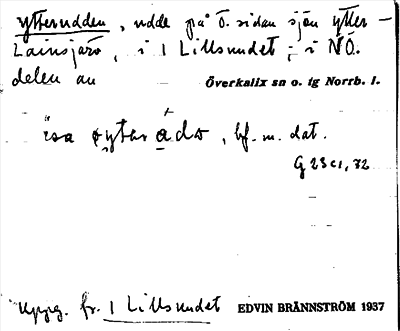 ytterudden, udde på ö. sidan sjön Ytter-
Lainsjärv, i 1 Lillsundet; i NÖ.
delen av Överkalix sn o. tg Norrb. l.
bf. m. dat.
G 23 c1, 32
Uppg. fr. 1 Lillsundet EDVIN BRÄNNSTRÖM 1937